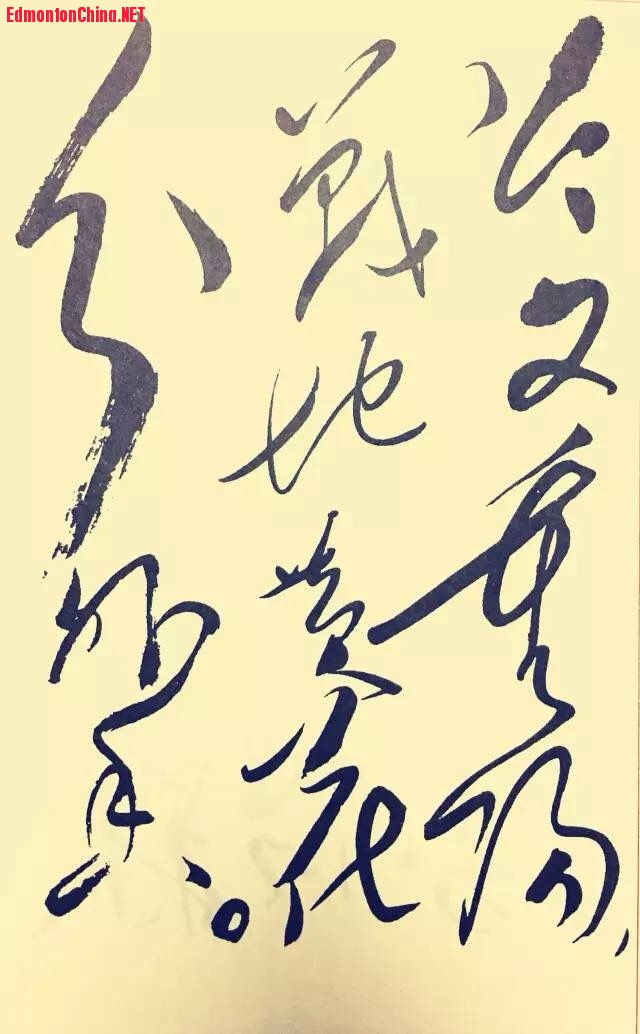 EdmontonChina.NET
今又重陽，
戰地黄花
分外香。